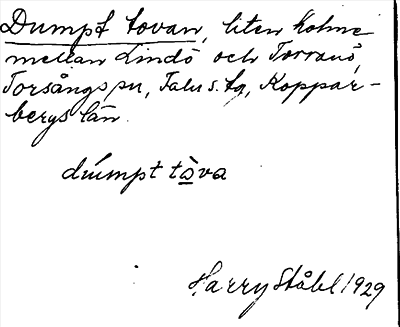 Dumpf tovan, liten holme
mellan Lindö och Torranö,
Torsångs sn, Falu s. tg, Koppar-
bergs län.
dúmpt tova
Harry Ståhl 1929